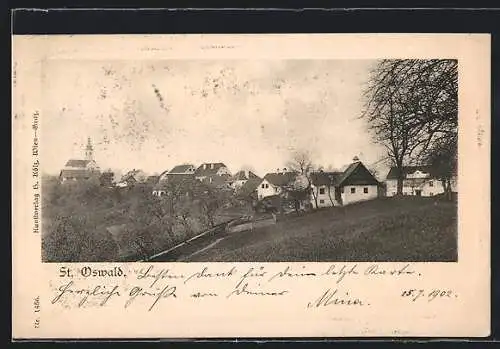 Kunstverlag H. Kölz, Wien–Graz.
St. Oswald.
Besten Dank für dein letzte Karte.
Herzliche Grüße von deiner
Mina.
15.7.1902.
Nr. 1456.